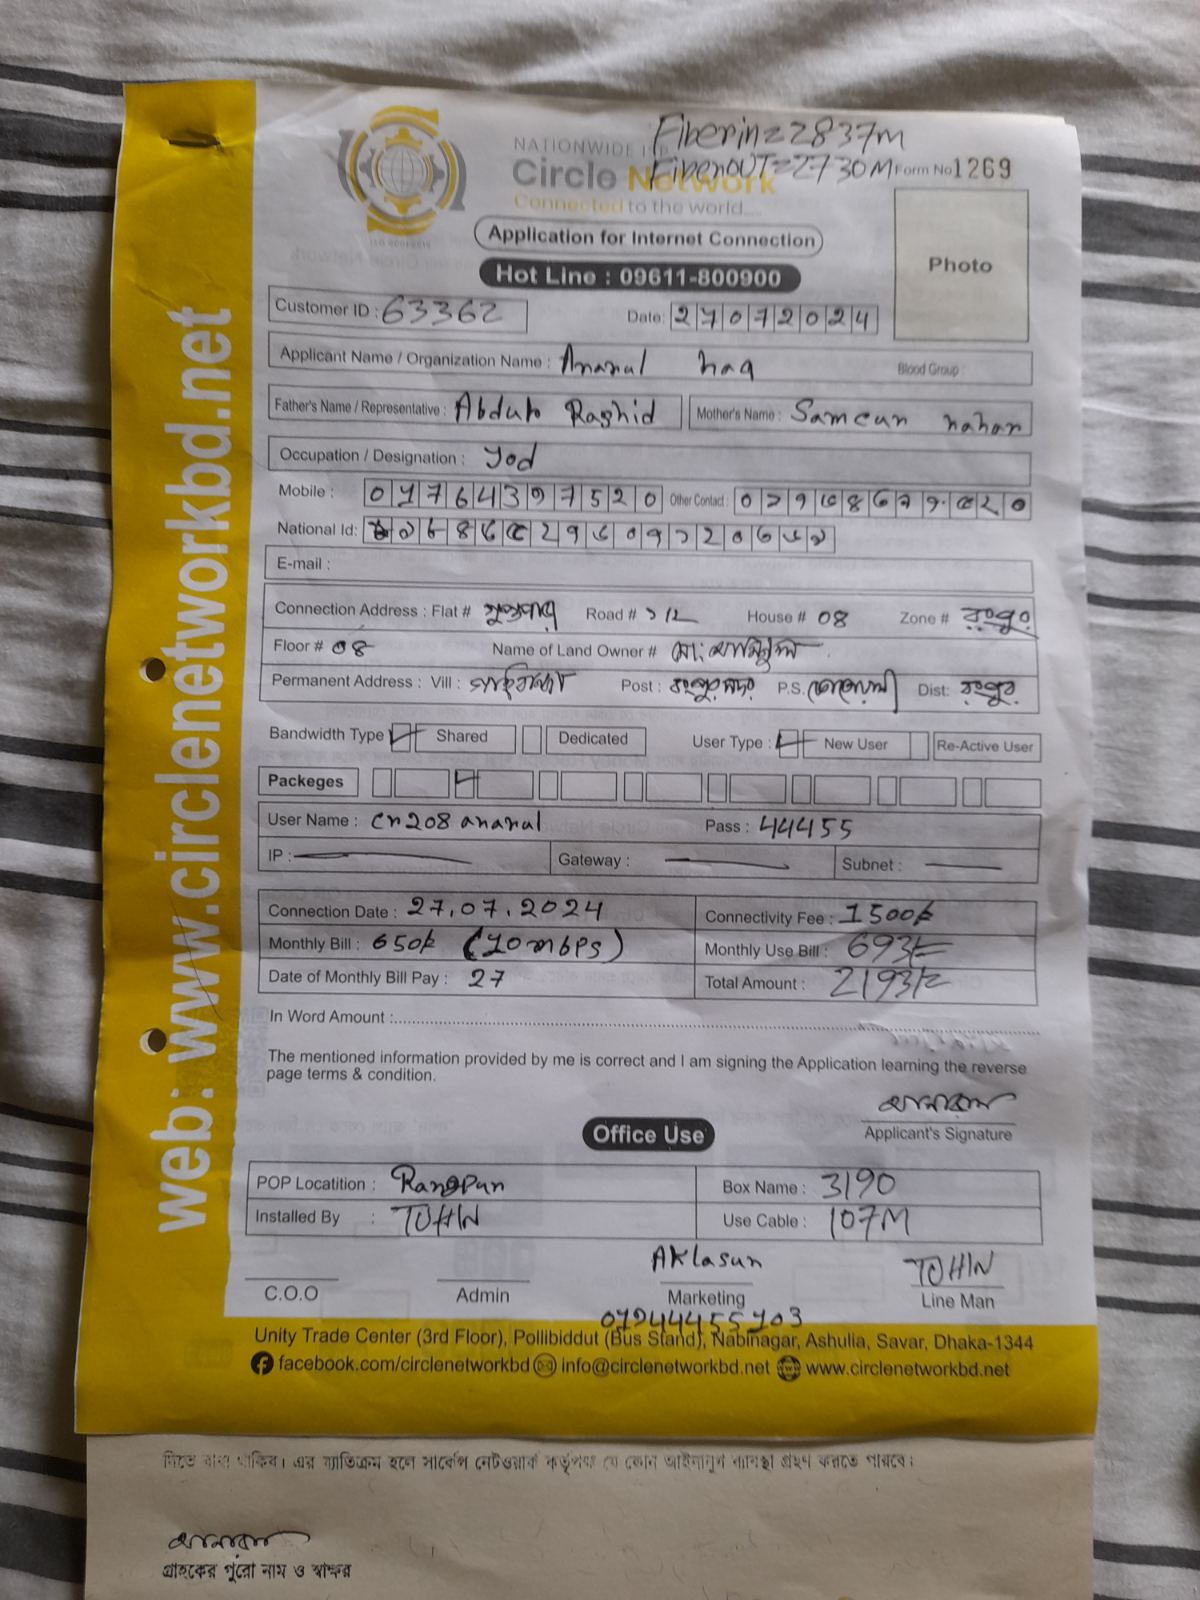 Fiberin=2837m
NATIONWIDE ISP
FiberOUT=2730M Form No 1269
Circle Network
Connected to the world.....
Application for Internet Connection
Photo
Hot Line : 09611-800900
Customer ID : 63362
Date: 27072024
Applicant Name / Organization Name : Ananul haq Blood Group :
Father's Name / Representative : Abdul Rashid Mother's Name : Samcun nahar
Occupation / Designation : Jod
Mobile : 01764397520 Other Contact :
National Id:
E-mail :
Connection Address : Flat # Road # ১/2 House # 08 Zone # রংপুর
Floor # 08 Name of Land Owner #
Permanent Address : Vill : Post : রংপুর সদর P.S. Dist: রংপুর
Bandwidth Type Shared Dedicated User Type : New User Re-Active User
Packeges
User Name : cn208 ananul Pass : 44455
IP : Gateway : Subnet :
Connection Date : 27.07.2024 Connectivity Fee : 1500/=
Monthly Bill : 650/= (10mbps) Monthly Use Bill : 693/=
Date of Monthly Bill Pay : 27 Total Amount : 2193/=
In Word Amount :
The mentioned information provided by me is correct and I am signing the Application learning the reverse
page terms & condition.
Applicant's Signature
Office Use
POP Locatition : Rangpur Box Name : 3190
Installed By : TOHIN Use Cable : 107M
AKlasur TOHIN
C.O.O Admin Marketing Line Man
01944455103
Unity Trade Center (3rd Floor), Pollibiddut (Bus Stand), Nabinagar, Ashulia, Savar, Dhaka-1344
facebook.com/circlenetworkbd info@circlenetworkbd.net www.circlenetworkbd.net
web: www.circlenetworkbd.net
দিতে বাধ্য থাকিব। এর ব্যতিক্রম হলে সার্কেল নেটওয়ার্ক কর্তৃপক্ষ যে কোন আইনানুগ ব্যবস্থা গ্রহণ করতে পারবে।
গ্রাহকের পুরো নাম ও স্বাক্ষর